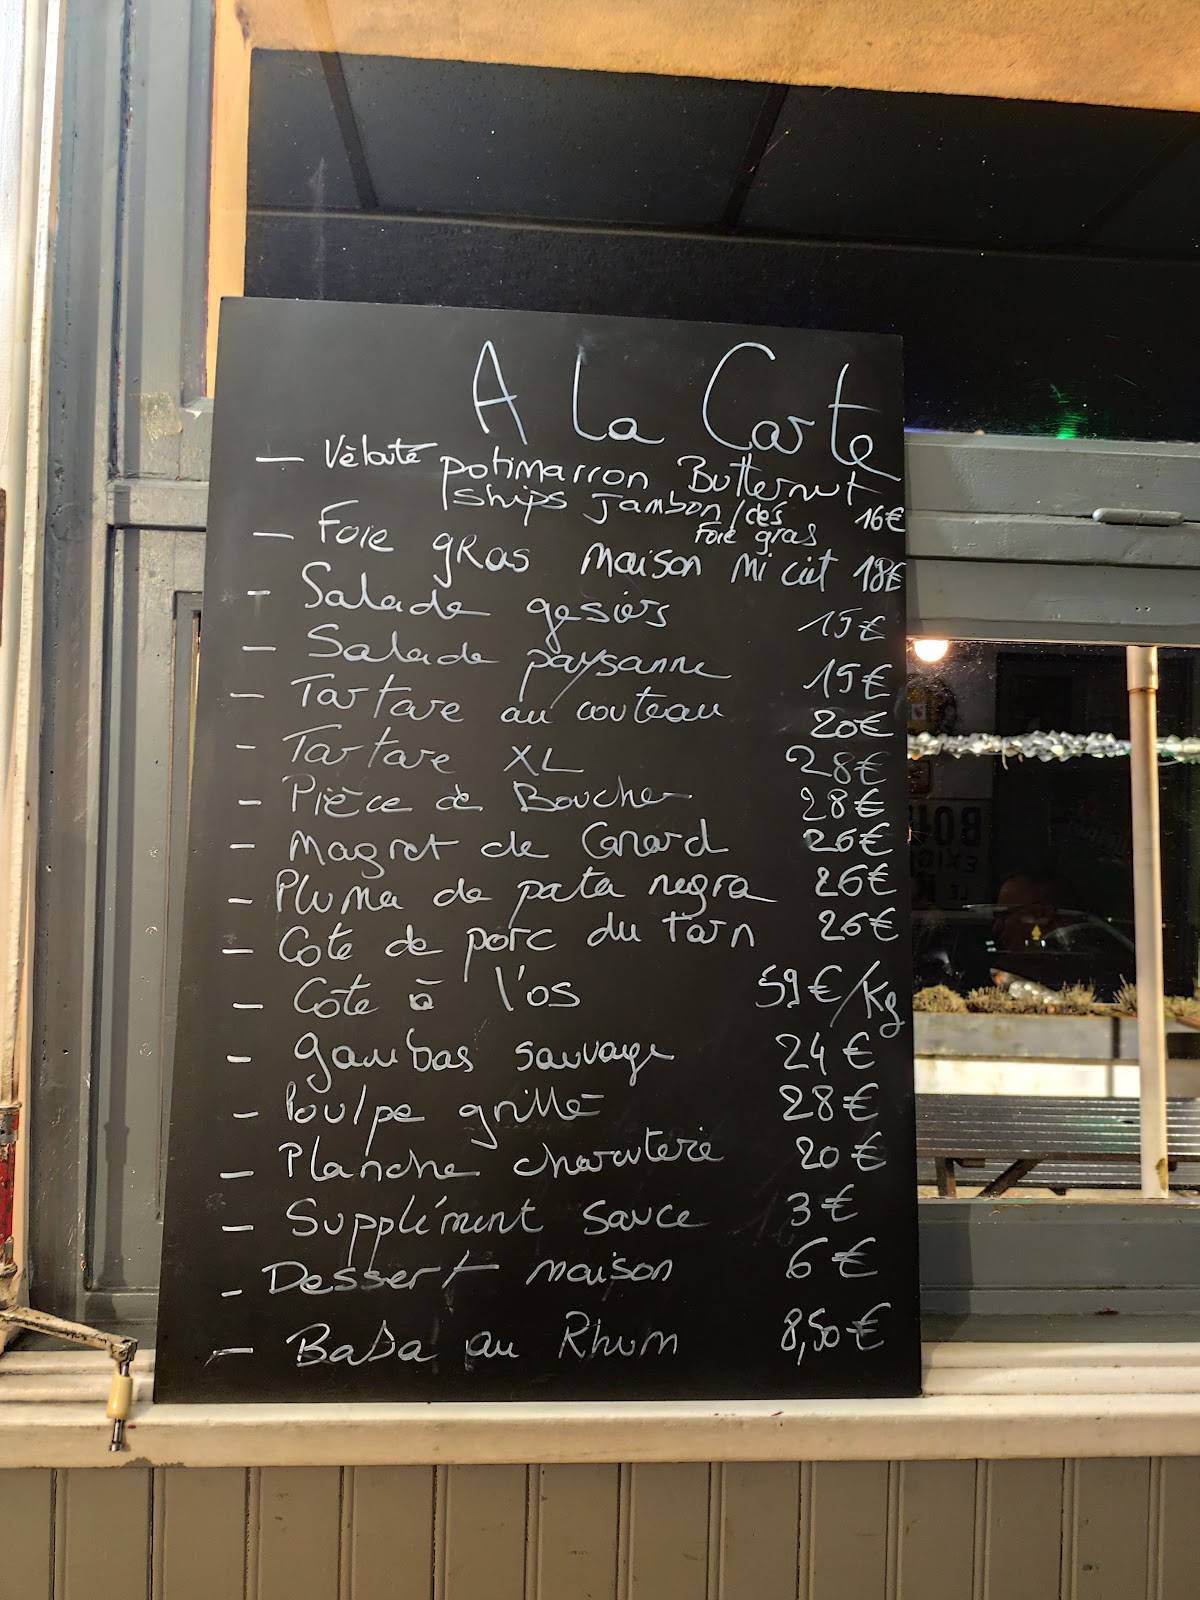 A La Carte
— Vèlouté potimarron Butternut
ships Jambon/des Foie gras 16€
— Foie gras maison mi cuit 18€
- Salade gesiers 15€
- Salade paysanne 15€
- Tartare au couteau 20€
- Tartare XL 28€
- Pièce de Boucher 28€
- Magret de Canard 26€
- Pluma de pata negra 26€
- Cote de porc du Tarn 26€
- Cote à l'os 59€/Kg
- gambas sauvage 24€
- Poulpe grillé 28€
- Planche charcuterie 20€
- Supplément sauce 3€
- Dessert maison 6€
- Baba au Rhum 8,50€